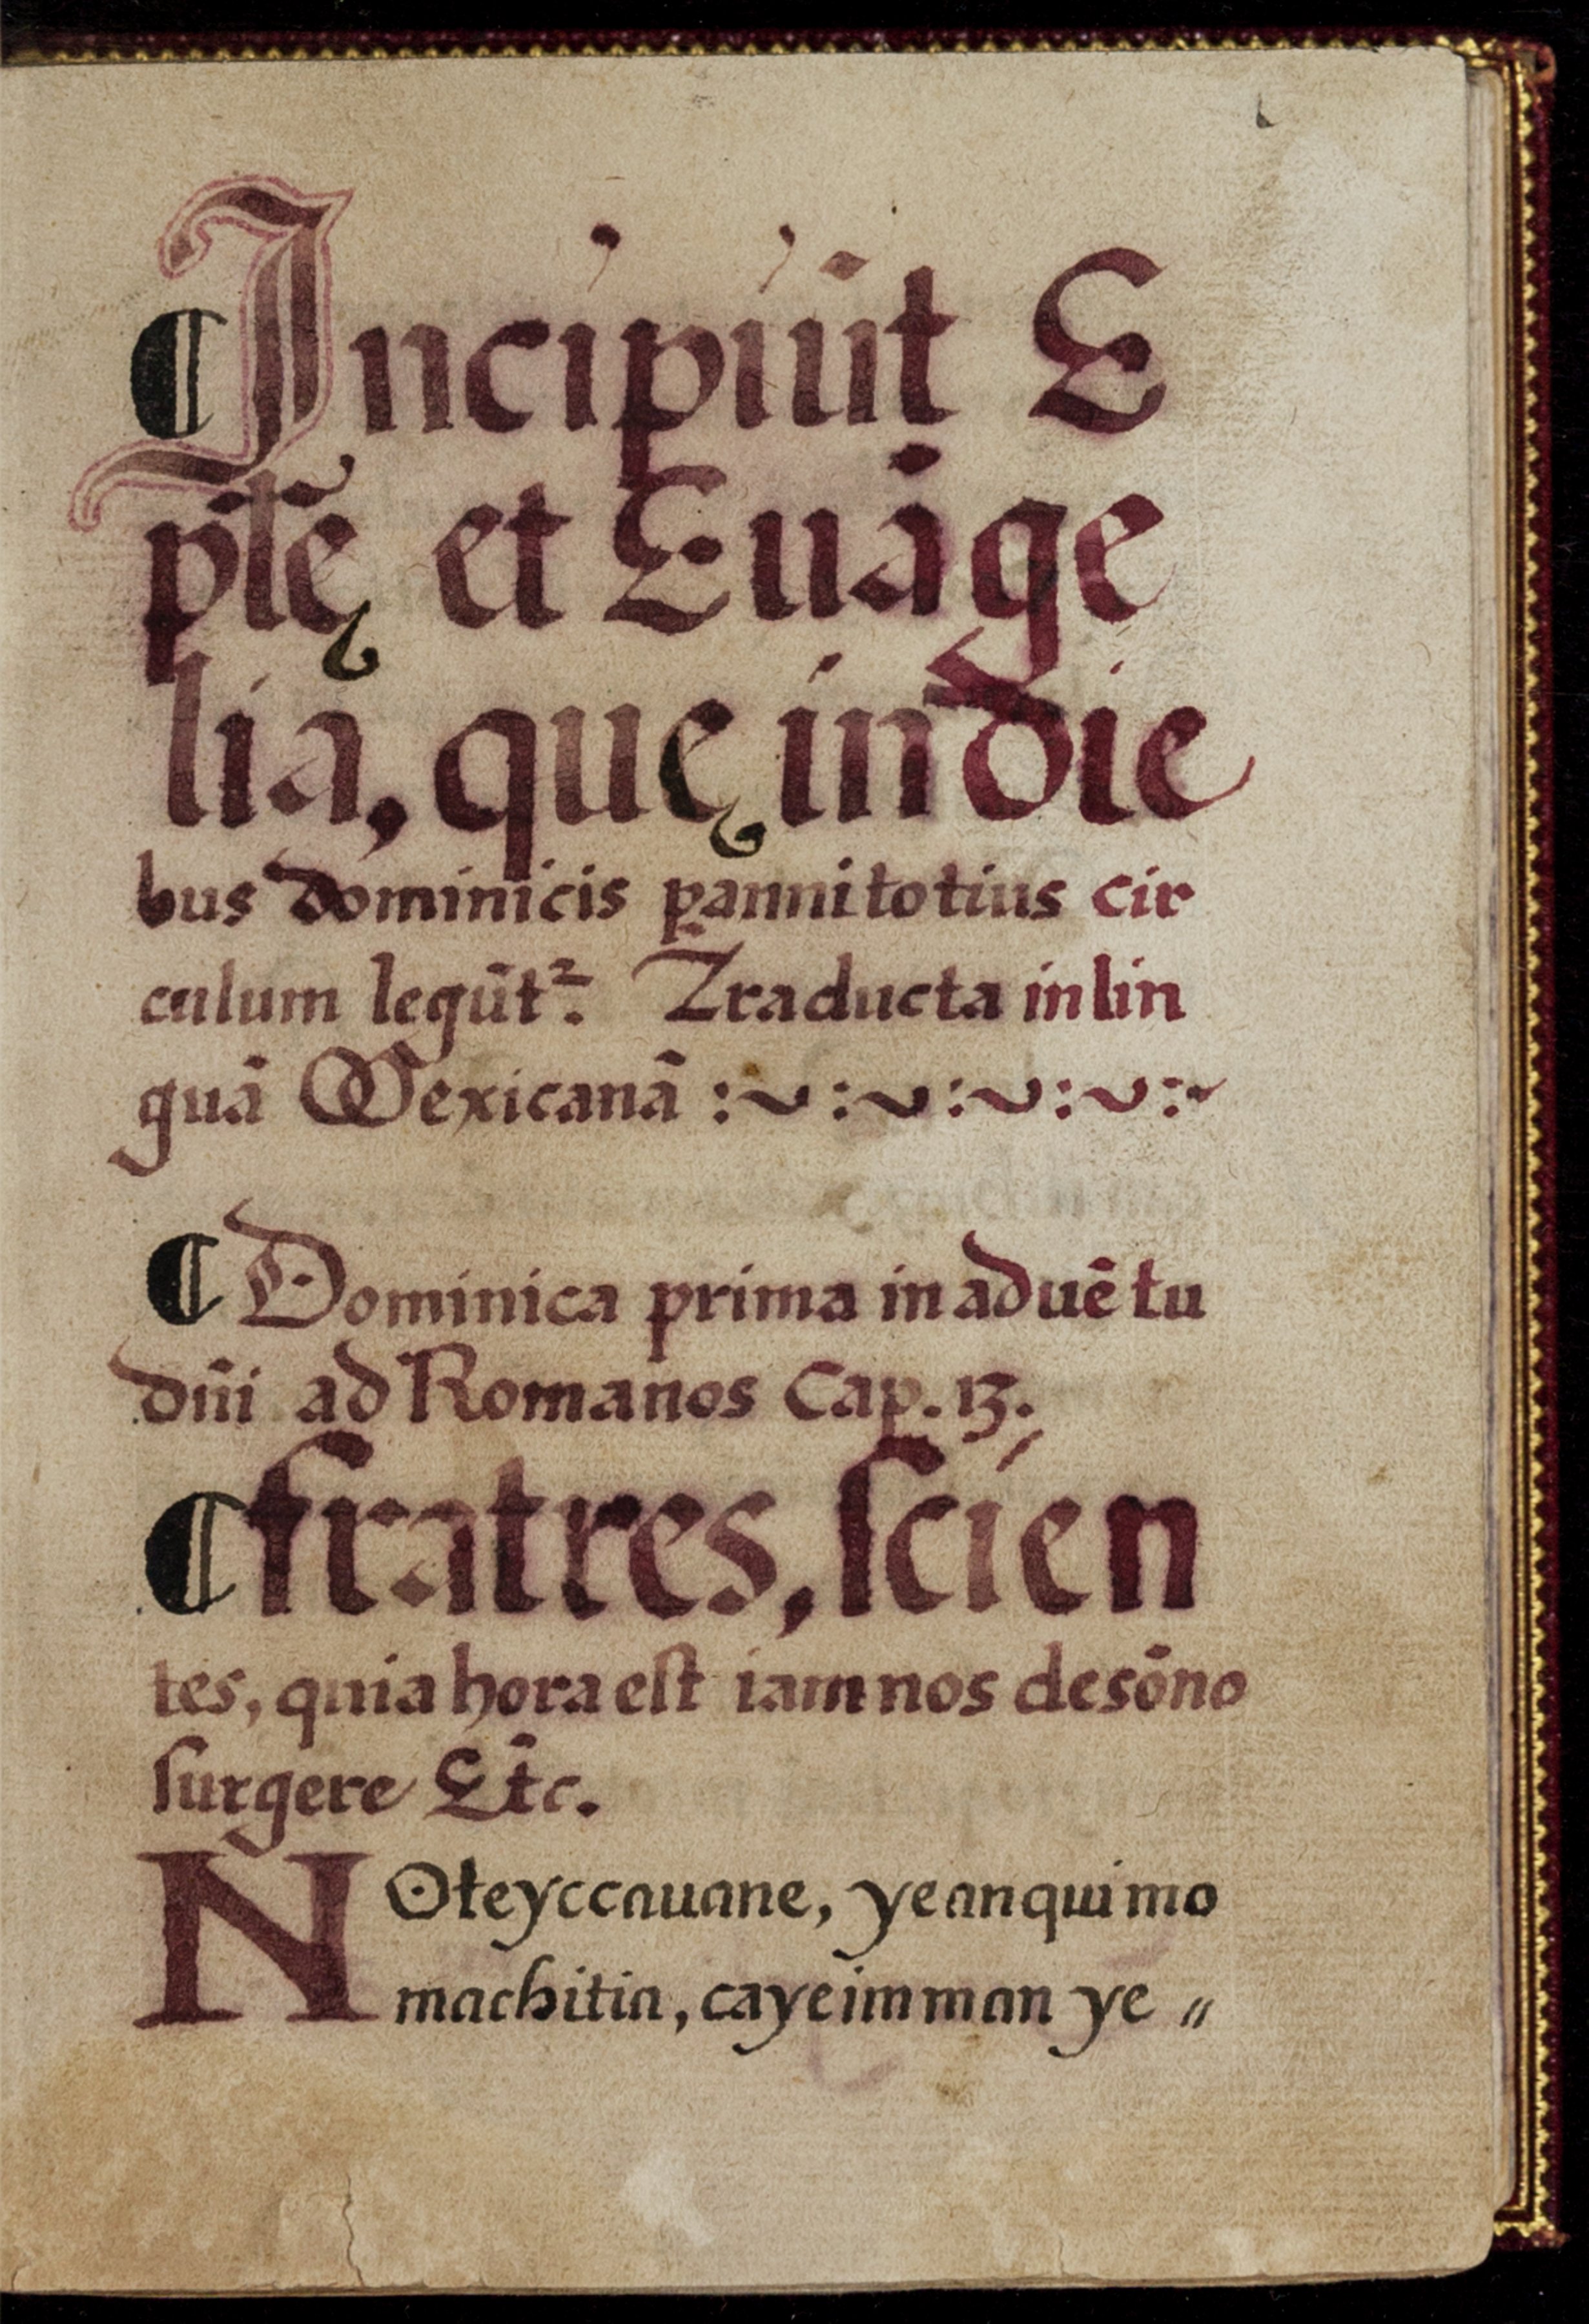 ¶ Incipiūt E
pl̄ę et Euāge
lia, quę in die
bus dominicis ꝑ anni totius cir
culum legūt². Traducta in lin
guā Mexicanā :~:~:~:~:~
¶ Dominica prima in aduētu
dn̄i ad Romanos Cap. 13.
¶ fratres, ſcien
tes, quia hora eſt iam nos de sōno
ſurgere Et̄c.
NOteyccauane, yeanquimo
machitia, cayeimman ye〃